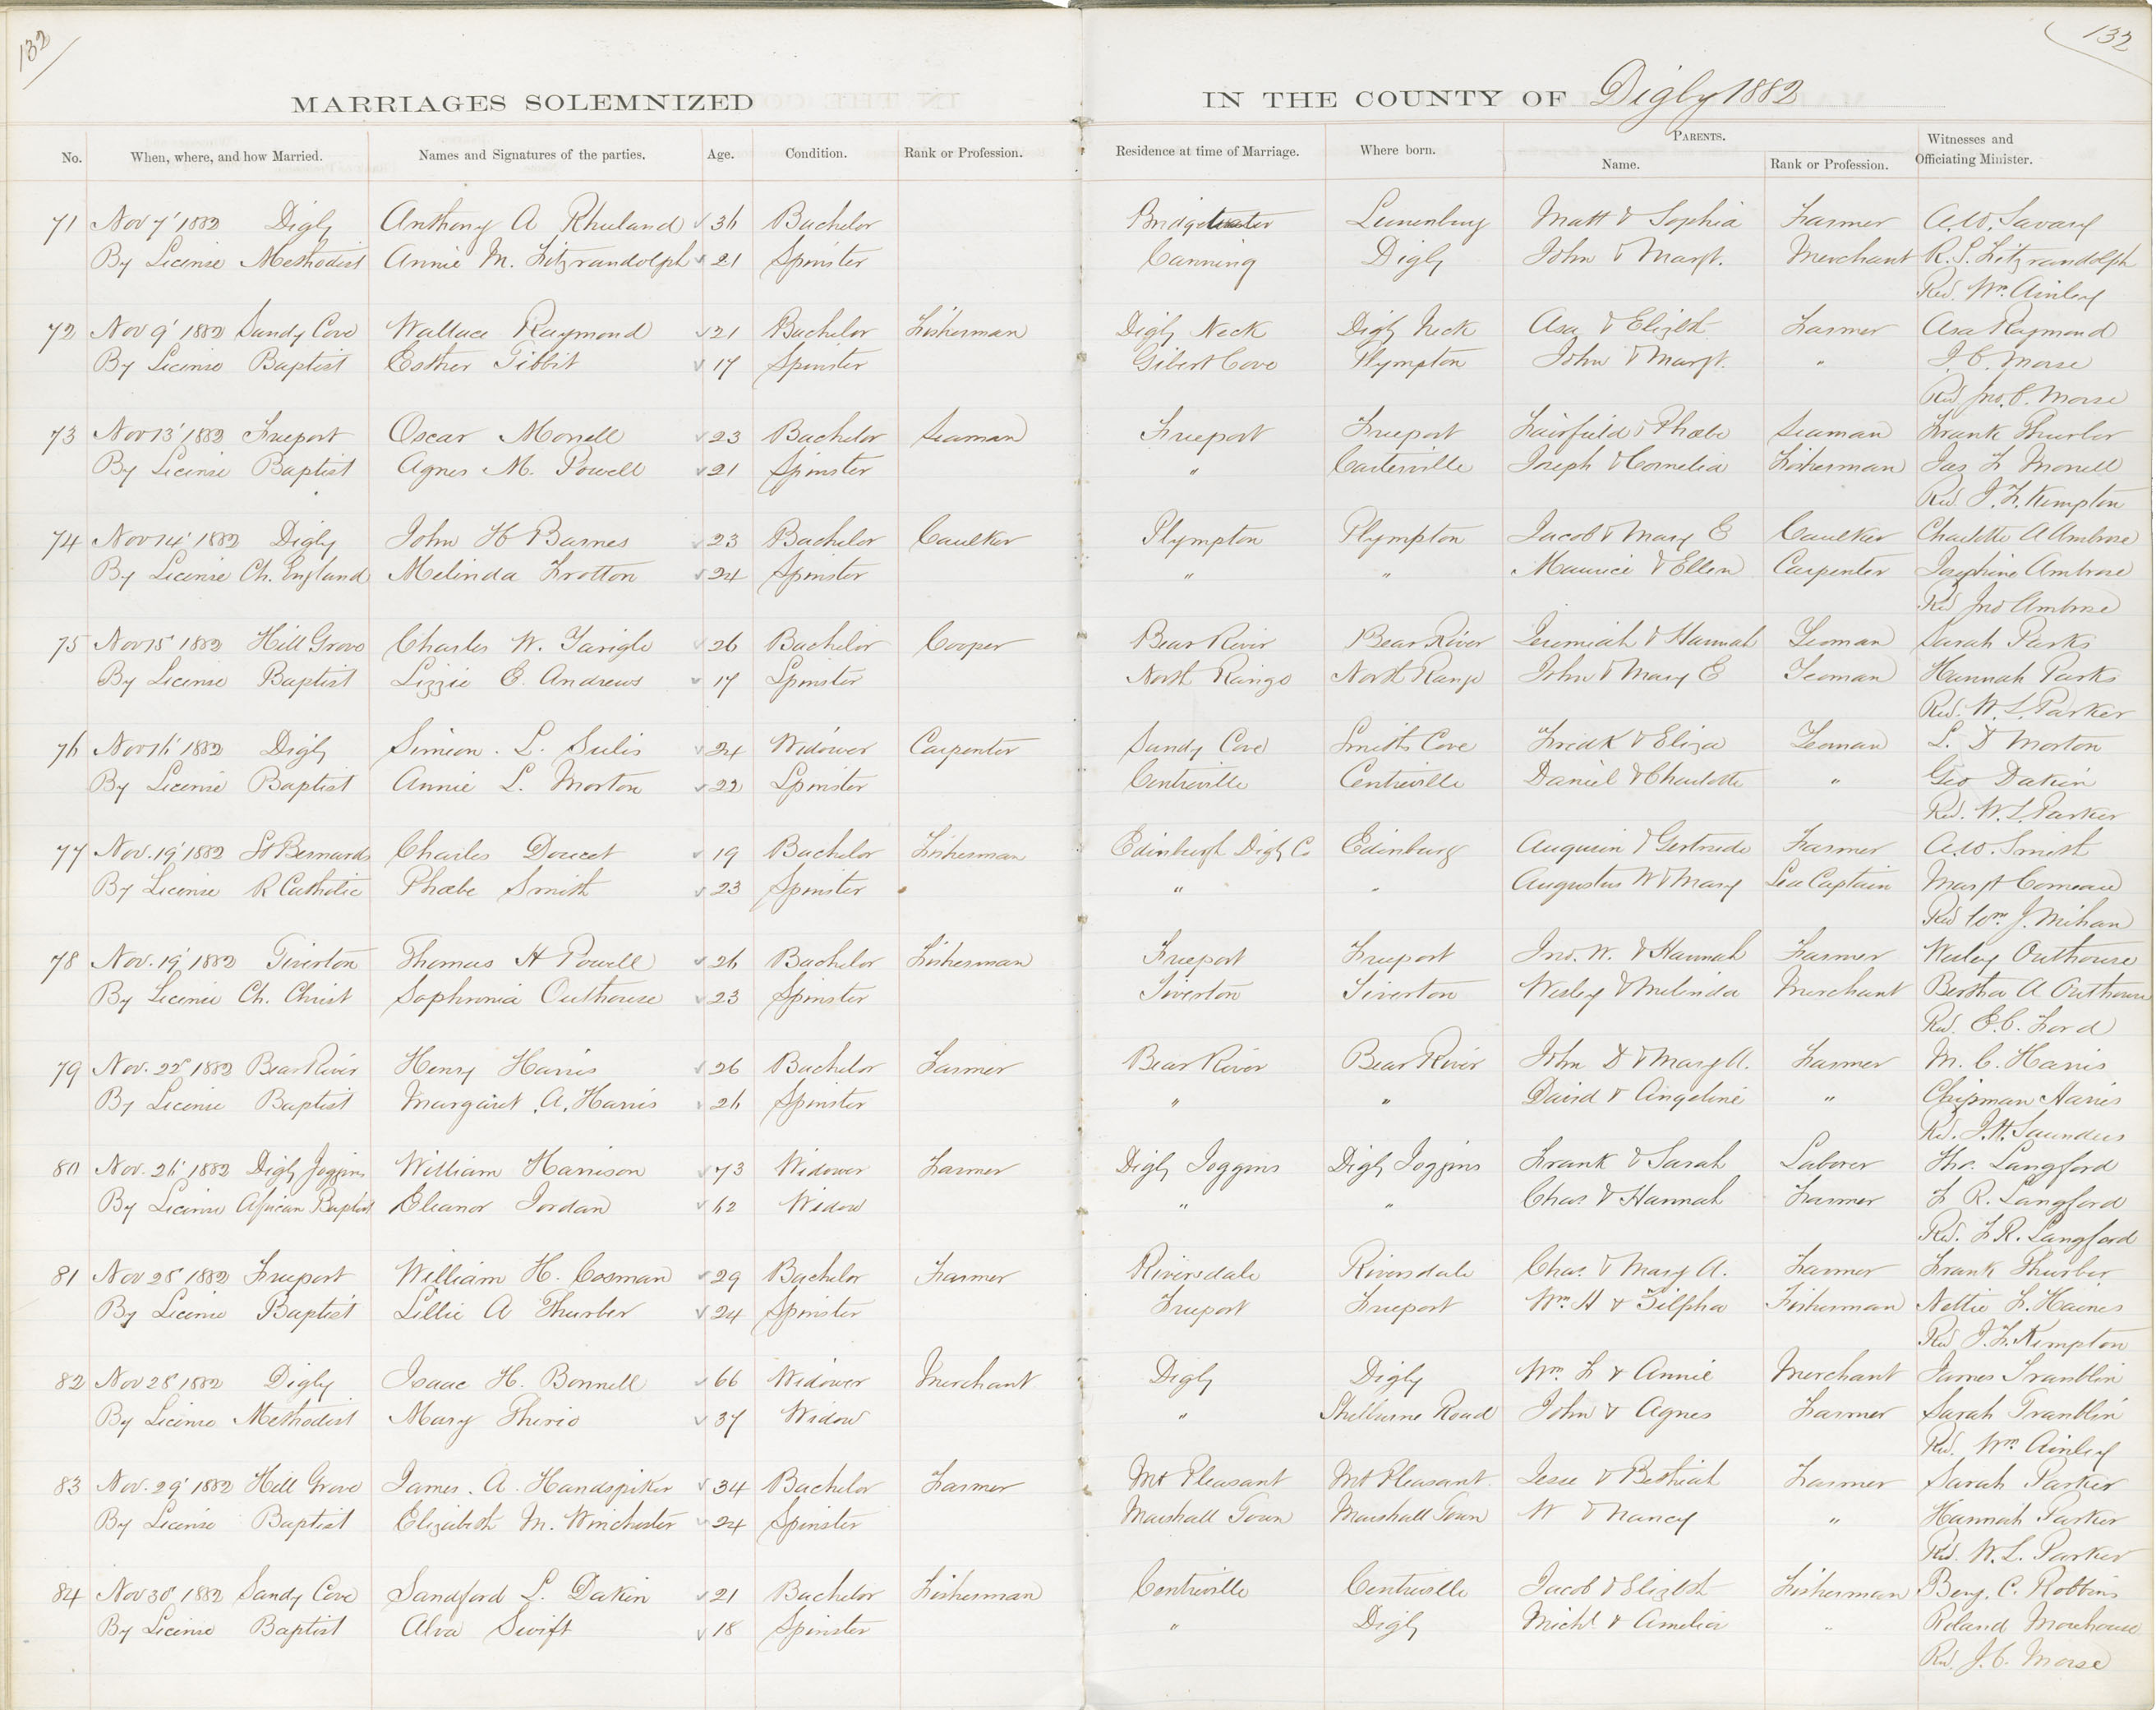 132
132
MARRIAGES SOLEMNIZED IN THE COUNTY OF Digby 1882
No. When, where, and how Married. Names and Signatures of the parties. Age. Condition. Rank or Profession. Residence at time of Marriage. Where born. PARENTS. Name. Rank or Profession. Witnesses and Officiating Minister.
71 Nov 7' 1882 Digby Anthony A Rhuland 36 Bachelor Bridgewater Lunenburg Matt & Sophia Farmer A.W. Savary
By License Methodist Annie M. Fitzrandolph 21 Spinster Canning Digby John & Margt. Merchant R. S. Fitzrandolph
Rev. Wm. Ainley
72 Nov 9' 1882 Sandy Cove Wallace Raymond 21 Bachelor Fisherman Digby Neck Digby Neck Asa & Elizbth Farmer Asa Raymond
By License Baptist Esther Tibbit 17 Spinster Gilbert Cove Plympton John & Margt. " J. C. Morse
Rev Jno. C. Morse
73 Nov 13' 1882 Freeport Oscar Morrell 23 Bachelor Seaman Freeport Freeport Fairfield & Phœbe Seaman Frank Thurber
By License Baptist Agnes M. Powell 21 Spinster " Carterville Joseph & Cornelia Fisherman Jas F Morrell
Rev. J. F. Kempton
74 Nov 14' 1882 Digby John H Barnes 23 Bachelor Caulker Plympton Plympton Jacob & Mary E Caulker Charlotte A Ambrose
By License Ch. England Melinda Frotton 24 Spinster " " Maurice & Ellen Carpenter Josephine Ambrose
Rev Jno Ambrose
75 Nov 15' 1882 Hill Grove Charles W. Yarigle 26 Bachelor Cooper Bear River Bear River Jeremiah & Hannah Yeoman Sarah Parks
By License Baptist Lizzie E. Andrews 17 Spinster North Range North Range John & Mary E Yeoman Hannah Parks
Rev. W. L. Parker
76 Nov 16' 1882 Digby Simeon. L. Sulis 24 Widower Carpenter Sandy Cove Smiths Cove Fredk & Eliza Yeoman L. D Morton
By License Baptist Annie L. Morton 22 Spinster Centreville Centreville Daniel & Charlotte " Geo Dakin
Rev. W. L Parker
77 Nov. 19' 1882 St Bernards Charles Doucet 19 Bachelor Fisherman Edinburgh Digby Co Edinburg Augusin & Gertrude Farmer A.W. Smith
By License R Catholic Phœbe Smith 23 Spinster " " Augustus W & Mary Sea Captain Margt Comeau
Rev Wm J. Mihan
78 Nov. 19' 1882 Tiverton Thomas H Powell 26 Bachelor Fisherman Freeport Freeport Jno. W. & Hannah Farmer Wesley Outhouse
By License Ch. Christ Sophronia Outhouse 23 Spinster Tiverton Tiverton Wesley & Melinda Merchant Bertha A Outhouse
Rev. E. C. Ford
79 Nov. 22' 1882 Bear River Henry Harris 26 Bachelor Farmer Bear River Bear River John D & Mary A. Farmer M. C. Harris
By License Baptist Margaret. A. Harris 26 Spinster " " David & Angeline " Chipman Harris
Rev. J. H. Saunders
80 Nov. 26' 1882 Digby Joggins William Harrison 73 Widower Farmer Digby Joggins Digby Joggins Frank & Sarah Laborer Thos. Langford
By License African Baptist Eleanor Jordan 62 Widow " " Chas & Hannah Farmer F R. Langford
Rev. F R. Langford
81 Nov 28' 1882 Freeport William H. Cosman 29 Bachelor Farmer Riversdale Riversdale Chas. & Mary A. Farmer Frank Thurber
By License Baptist Lillie A Thurber 24 Spinster Freeport Freeport Wm. H & Zilpha Fisherman Nettie F. Haines
Rev J. F. Kempton
82 Nov 28' 1882 Digby Isaac H. Bonnell 66 Widower Merchant Digby Digby Wm. F & Annie Merchant James Tranblin
By License Methodist Mary Therio 37 Widow " Shelburne Road John & Agnes Farmer Sarah Tranblin
Rev. Wm. Ainley
83 Nov. 29' 1882 Hill Grove James. A. Handspiker 34 Bachelor Farmer Mt Pleasant Mt Pleasant Jesse & Bethiah Farmer Sarah Parker
By License Baptist Elizabeth M. Winchester 24 Spinster Marshall Town Marshall Town W & Nancy " Hannah Parker
Rev. W. L. Parker
84 Nov 30' 1882 Sandy Cove Sandford L. Dakin 21 Bachelor Fisherman Centreville Centreville Jacob & Elizbth Fisherman Benj. C. Robbins
By License Baptist Alva Swift 18 Spinster " Digby Michl. & Amelia " Roland Morehouse
Rev. J. C. Morse